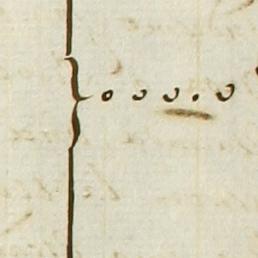 0 0 0 . 0